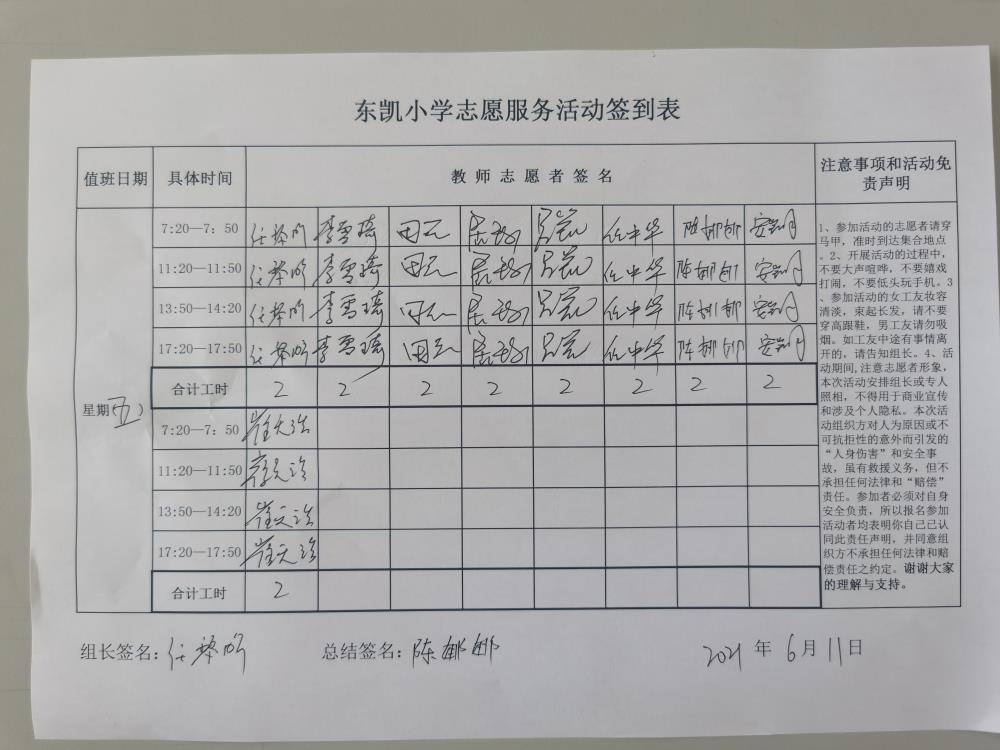 东凯小学志愿服务活动签到表
值班日期 具体时间 教师志愿者签名 注意事项和活动免责声明
星期(五)
7:20—7：50 李雪琦 田元 任中华
11:20—11:50 李雪琦 田元 任中华
13:50—14:20 李雪琦 田元 任中华
17:20—17:50 李雪琦 田元 任中华
合计工时 2 2 2 2 2 2 2 2
7:20—7：50
11:20—11:50
13:50—14:20
17:20—17:50
合计工时 2
1、参加活动的志愿者请穿
马甲，准时到达集合地点
。2、开展活动的过程中，
不要大声喧哗，不要嬉戏
打闹，不要低头玩手机。3
、参加活动的女工友妆容
清淡，束起长发，请不要
穿高跟鞋，男工友请勿吸
烟。如工友中途有事情离
开的，请告知组长。4、活
动期间,注意志愿者形象，
本次活动安排组长或专人
照相，不得用于商业宣传
和涉及个人隐私。本次活
动组织方对人为原因或不
可抗拒性的意外而引发的
“人身伤害”和安全事
故，虽有救援义务，但不
承担任何法律和“赔偿”
责任。参加者必须对自身
安全负责，所以报名参加
活动者均表明你自己已认
同此责任声明，并同意组
织方不承担任何法律和赔
偿责任之约定。谢谢大家
的理解与支持。
组长签名： 总结签名：陈 2021 年 6 月 11 日